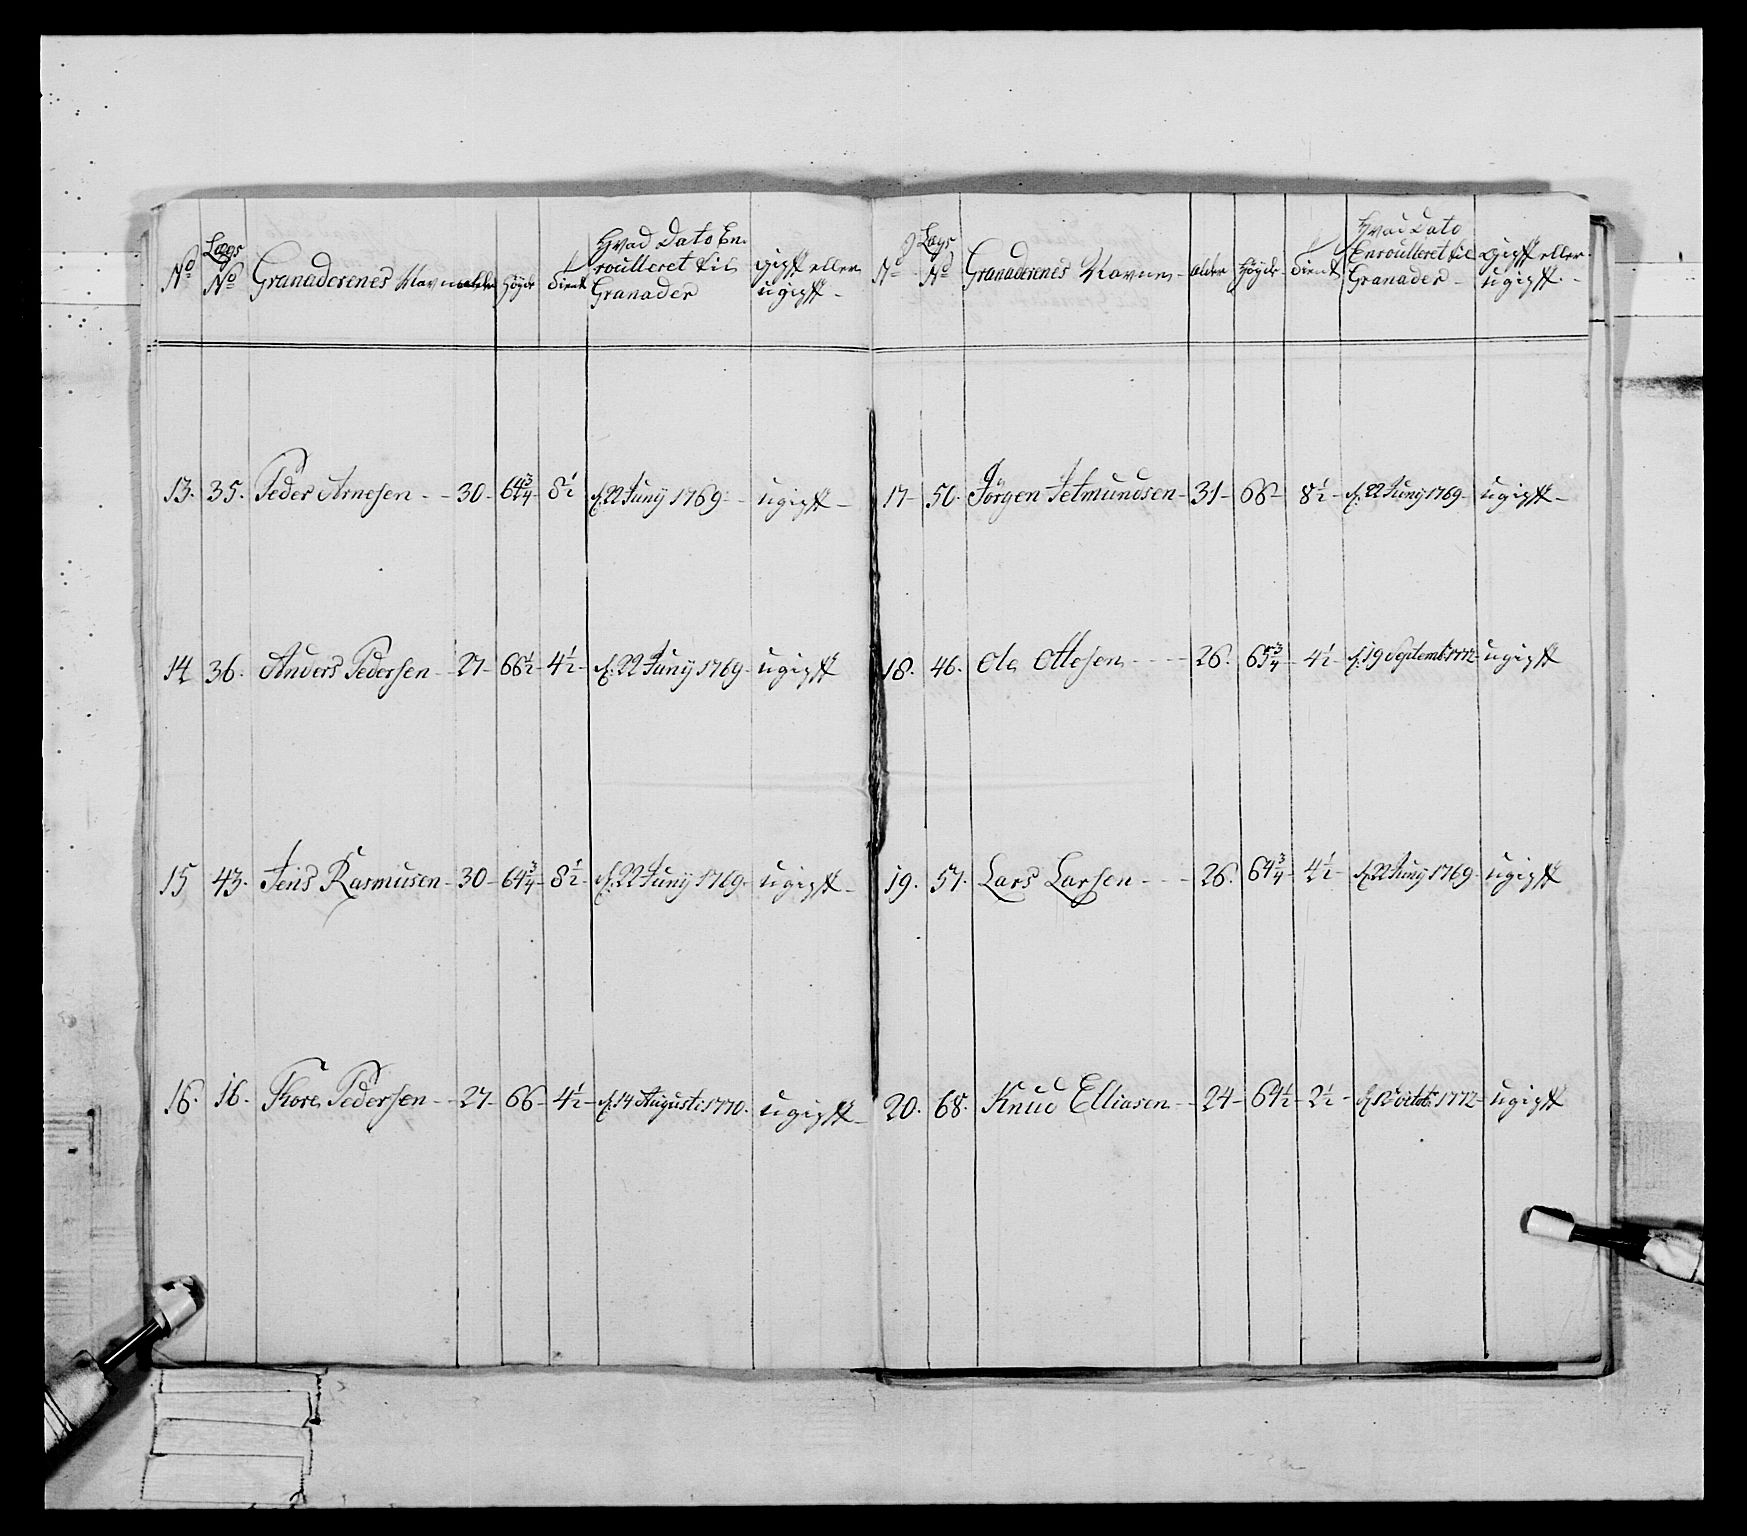 No Lægs No Granaderenes Navne alder Höyde tient Hvad Dato Enroulleret til Granader gift eller ugift
13. 35. Peder Arnesen 30 64 3/4 8 1/2 d. 22 Junÿ 1769 ugift
14 36. Anders Pedersen 27 66 1/2 4 1/2 d. 22 Junÿ 1769 ugift
15 43. Jens Rasmusen 30 64 3/4 8 1/2 d. 22 Junÿ 1769 ugift
16. 16. Thore Pedersen 27 66 4 1/2 d. 14 Augusti 1770. ugift
No Lægs No Granaderenes Navne alder Höyde tient Hvad Dato Enroulleret til Granader gift eller ugift
17 50. Jörgen Jetmundsen 31 66 8 1/2 d. 22 Junÿ 1769 ugift
18. 46. Ole Ottesen 26. 65 3/4 4 1/2 d. 19 Septemb: 1772 ugift
19. 57. Lars Larsen 26. 64 3/4 4 1/2 d. 22 Junÿ 1769 ugift
20. 68. Knud Elliasen 24 64 1/2 2 1/2 d. 12 octob: 1772 ugift